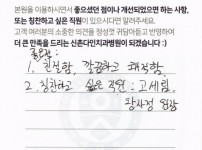 본원을 이용하시면서 좋으셨던 점이나 개선되었으면 하는 사항,
또는 칭찬하고 싶은 직원이 있으시다면 알려주세요.
고객 여러분의 소중한 의견을 정성껏 귀담아듣고 반영하여
더 큰 만족을 드리는 신촌다인치과병원이 되겠습니다 :)
좋은점:
1. 친절함, 깔끔하고 쾌적함,
2. 칭찬하고 싶은 직원: 고세림,
원장